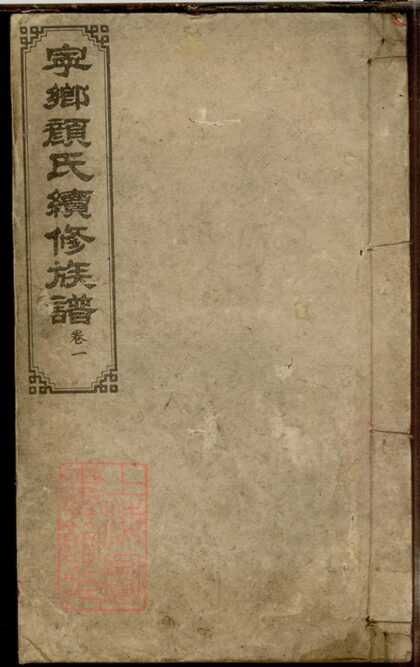 寜鄉顔氏續修族譜
卷一
上海圖
書館藏